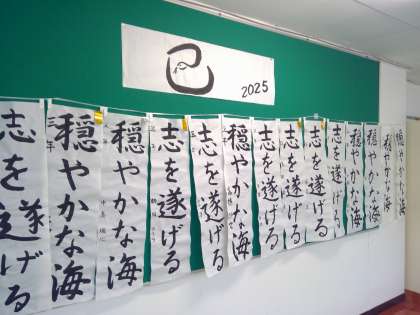 巳
2025
志を遂げる
穏やかな海
穏やかな海
志を遂げる
志を遂げる
穏やかな海
志を遂げる
志を遂げる
志を遂げる
志を遂げる
穏やかな海
穏やかな海
穏やかな海
穏やかな海